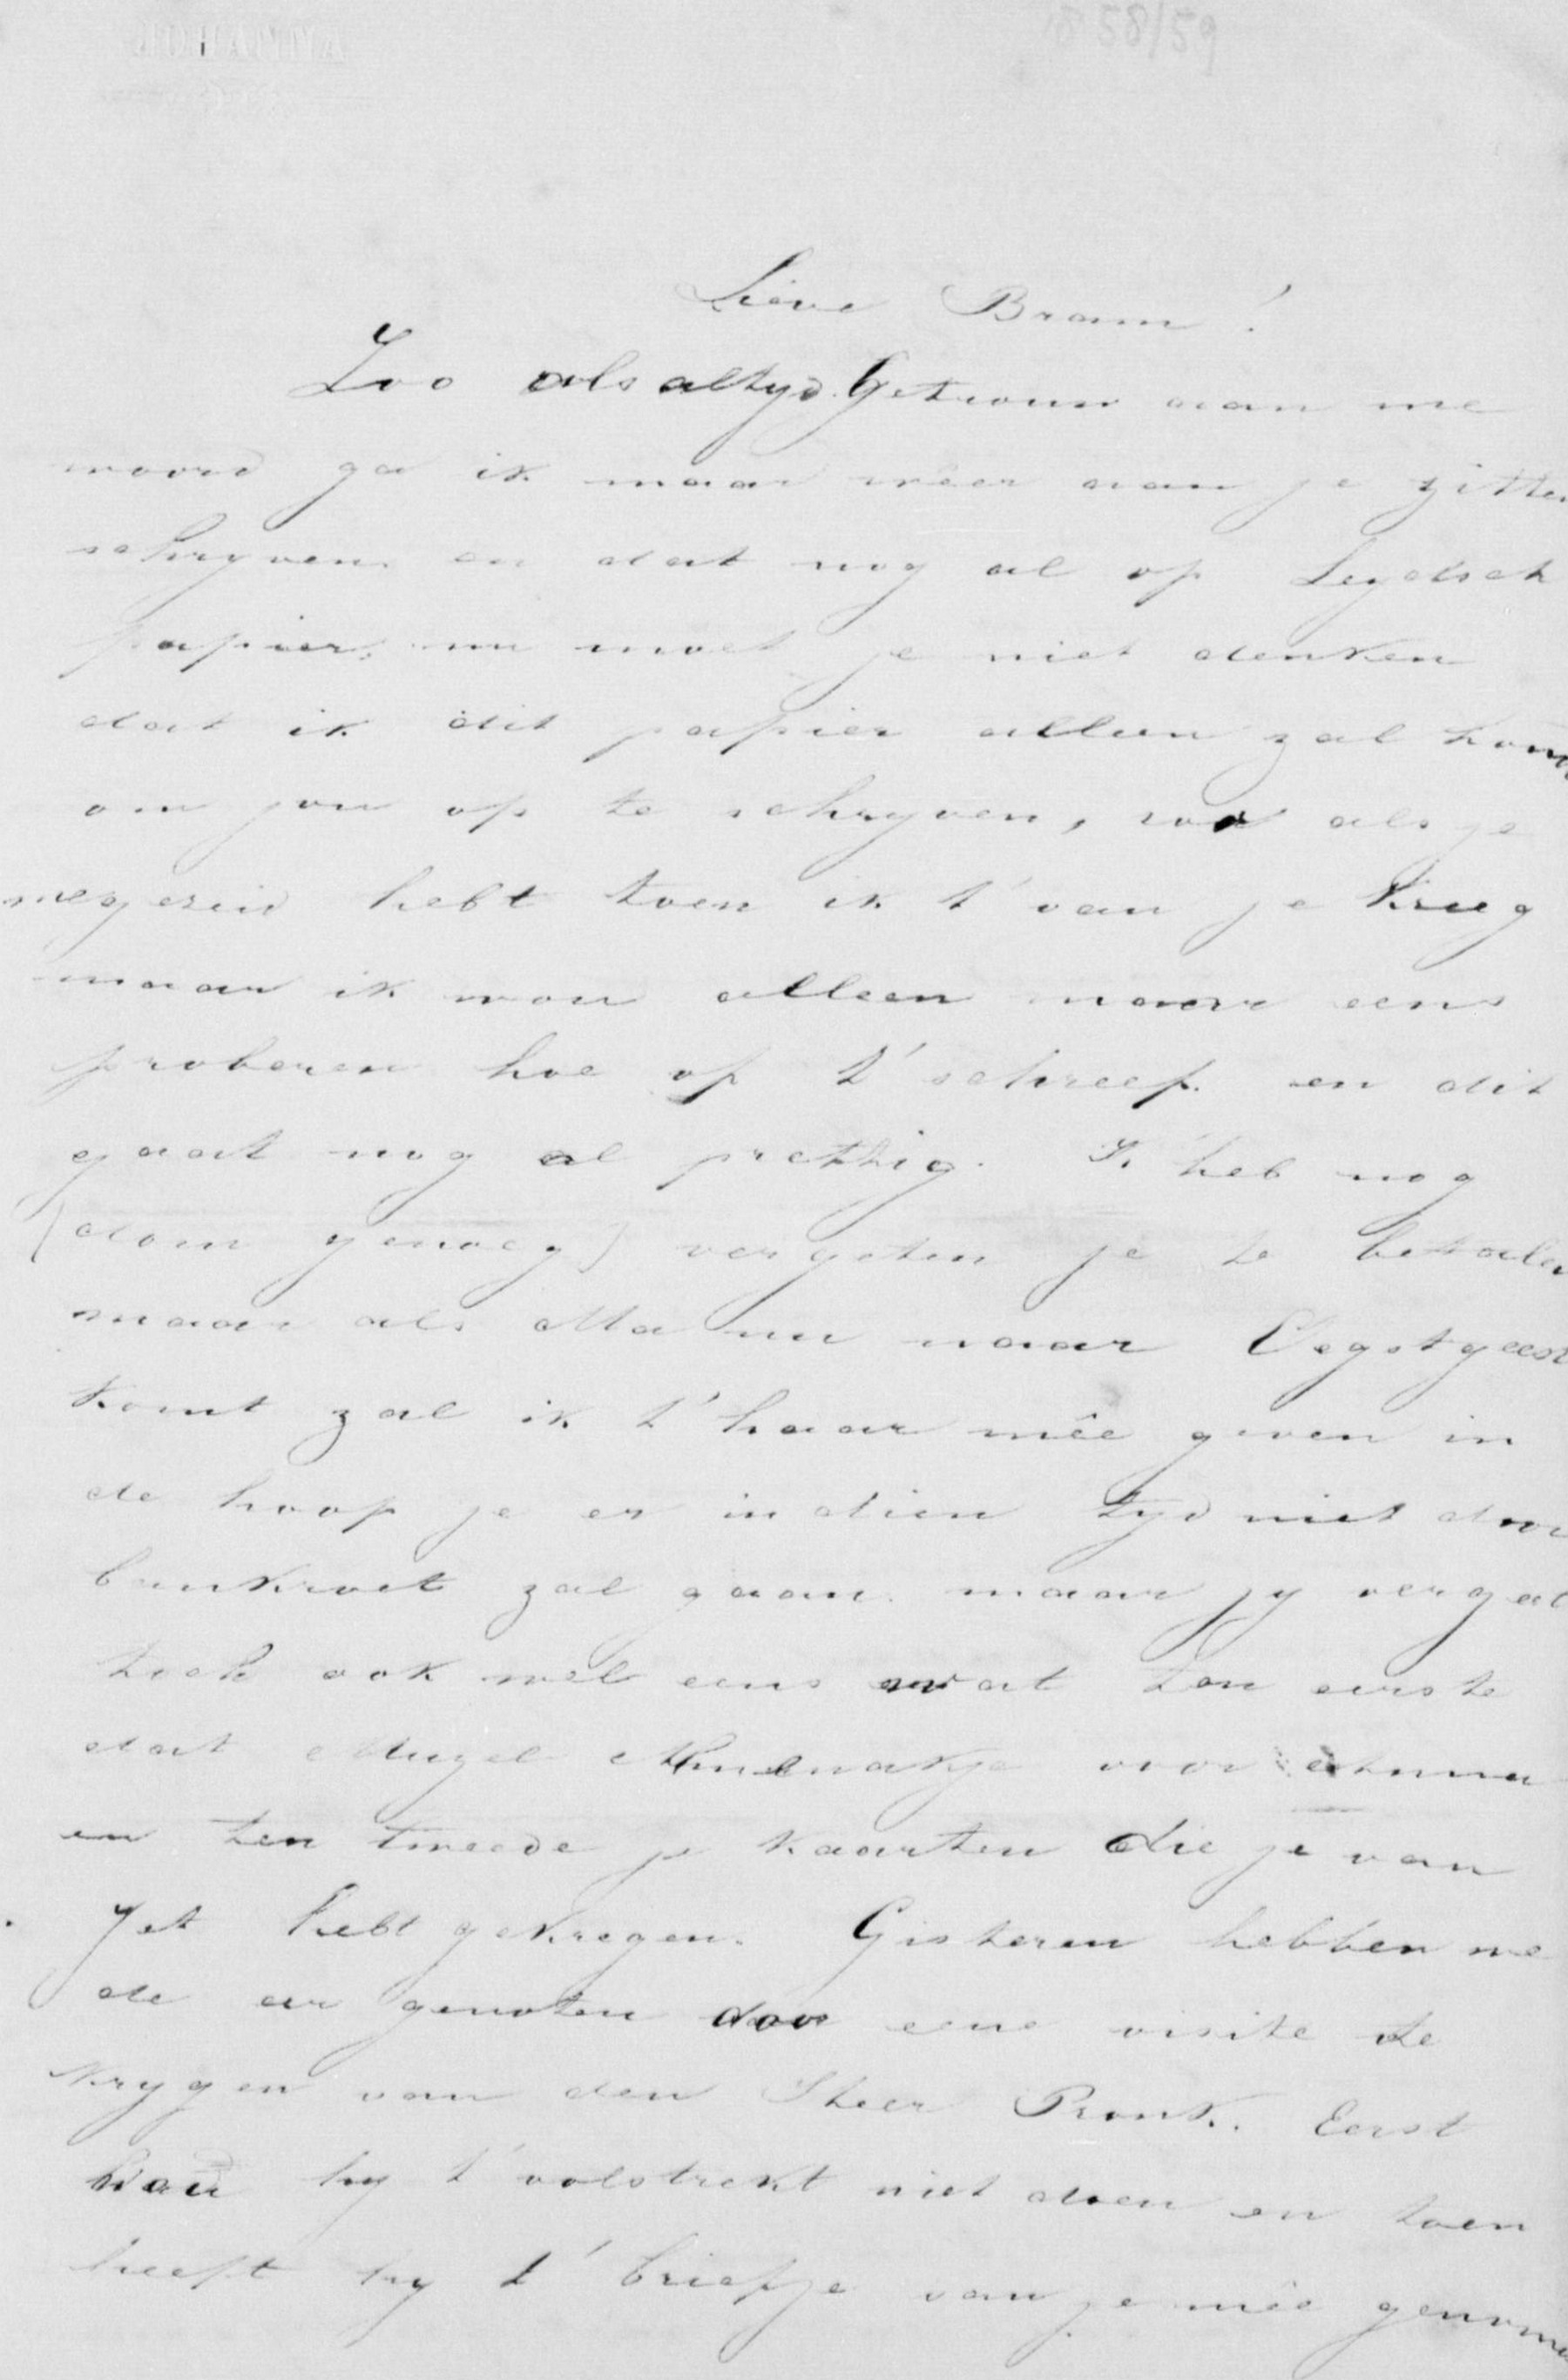 1858/59
Lieve Bram!
Zoo als altyd Getrouw aan me
woord ga ik maar wêer aan je zitten
schryven en dat nog al op Leydsch
papier, nu moet je niet denken
dat ik dit papier alleen zal
om jou op te schryven, als je
me gezeid hebt toen ik t' van je kreeg
maar ik wou alleen maar eens
proberen hoe op t' schreef en dit
gaat nog al prettig. Ik heb nog
(dom genoeg) vergeten je te betalen
maar als Ma nu naar Oegstgeest
komt zal ik t' haar mêe geven in
de hoop je er in dien tyd niet door
bankroet zal gaan. maar jy vergat
toch ook wel eens wat ten eerste
dat Almanakje voor
en ten tweede je kaarten die je van
Jet hebt gekregen. Gisteren hebben we
de eer genoten door eene visite te
krygen van den Heer Pronk. Eerst
wou hy t' volstrekt niet doen en toen
heeft hy t' briefje van je mêe genomen